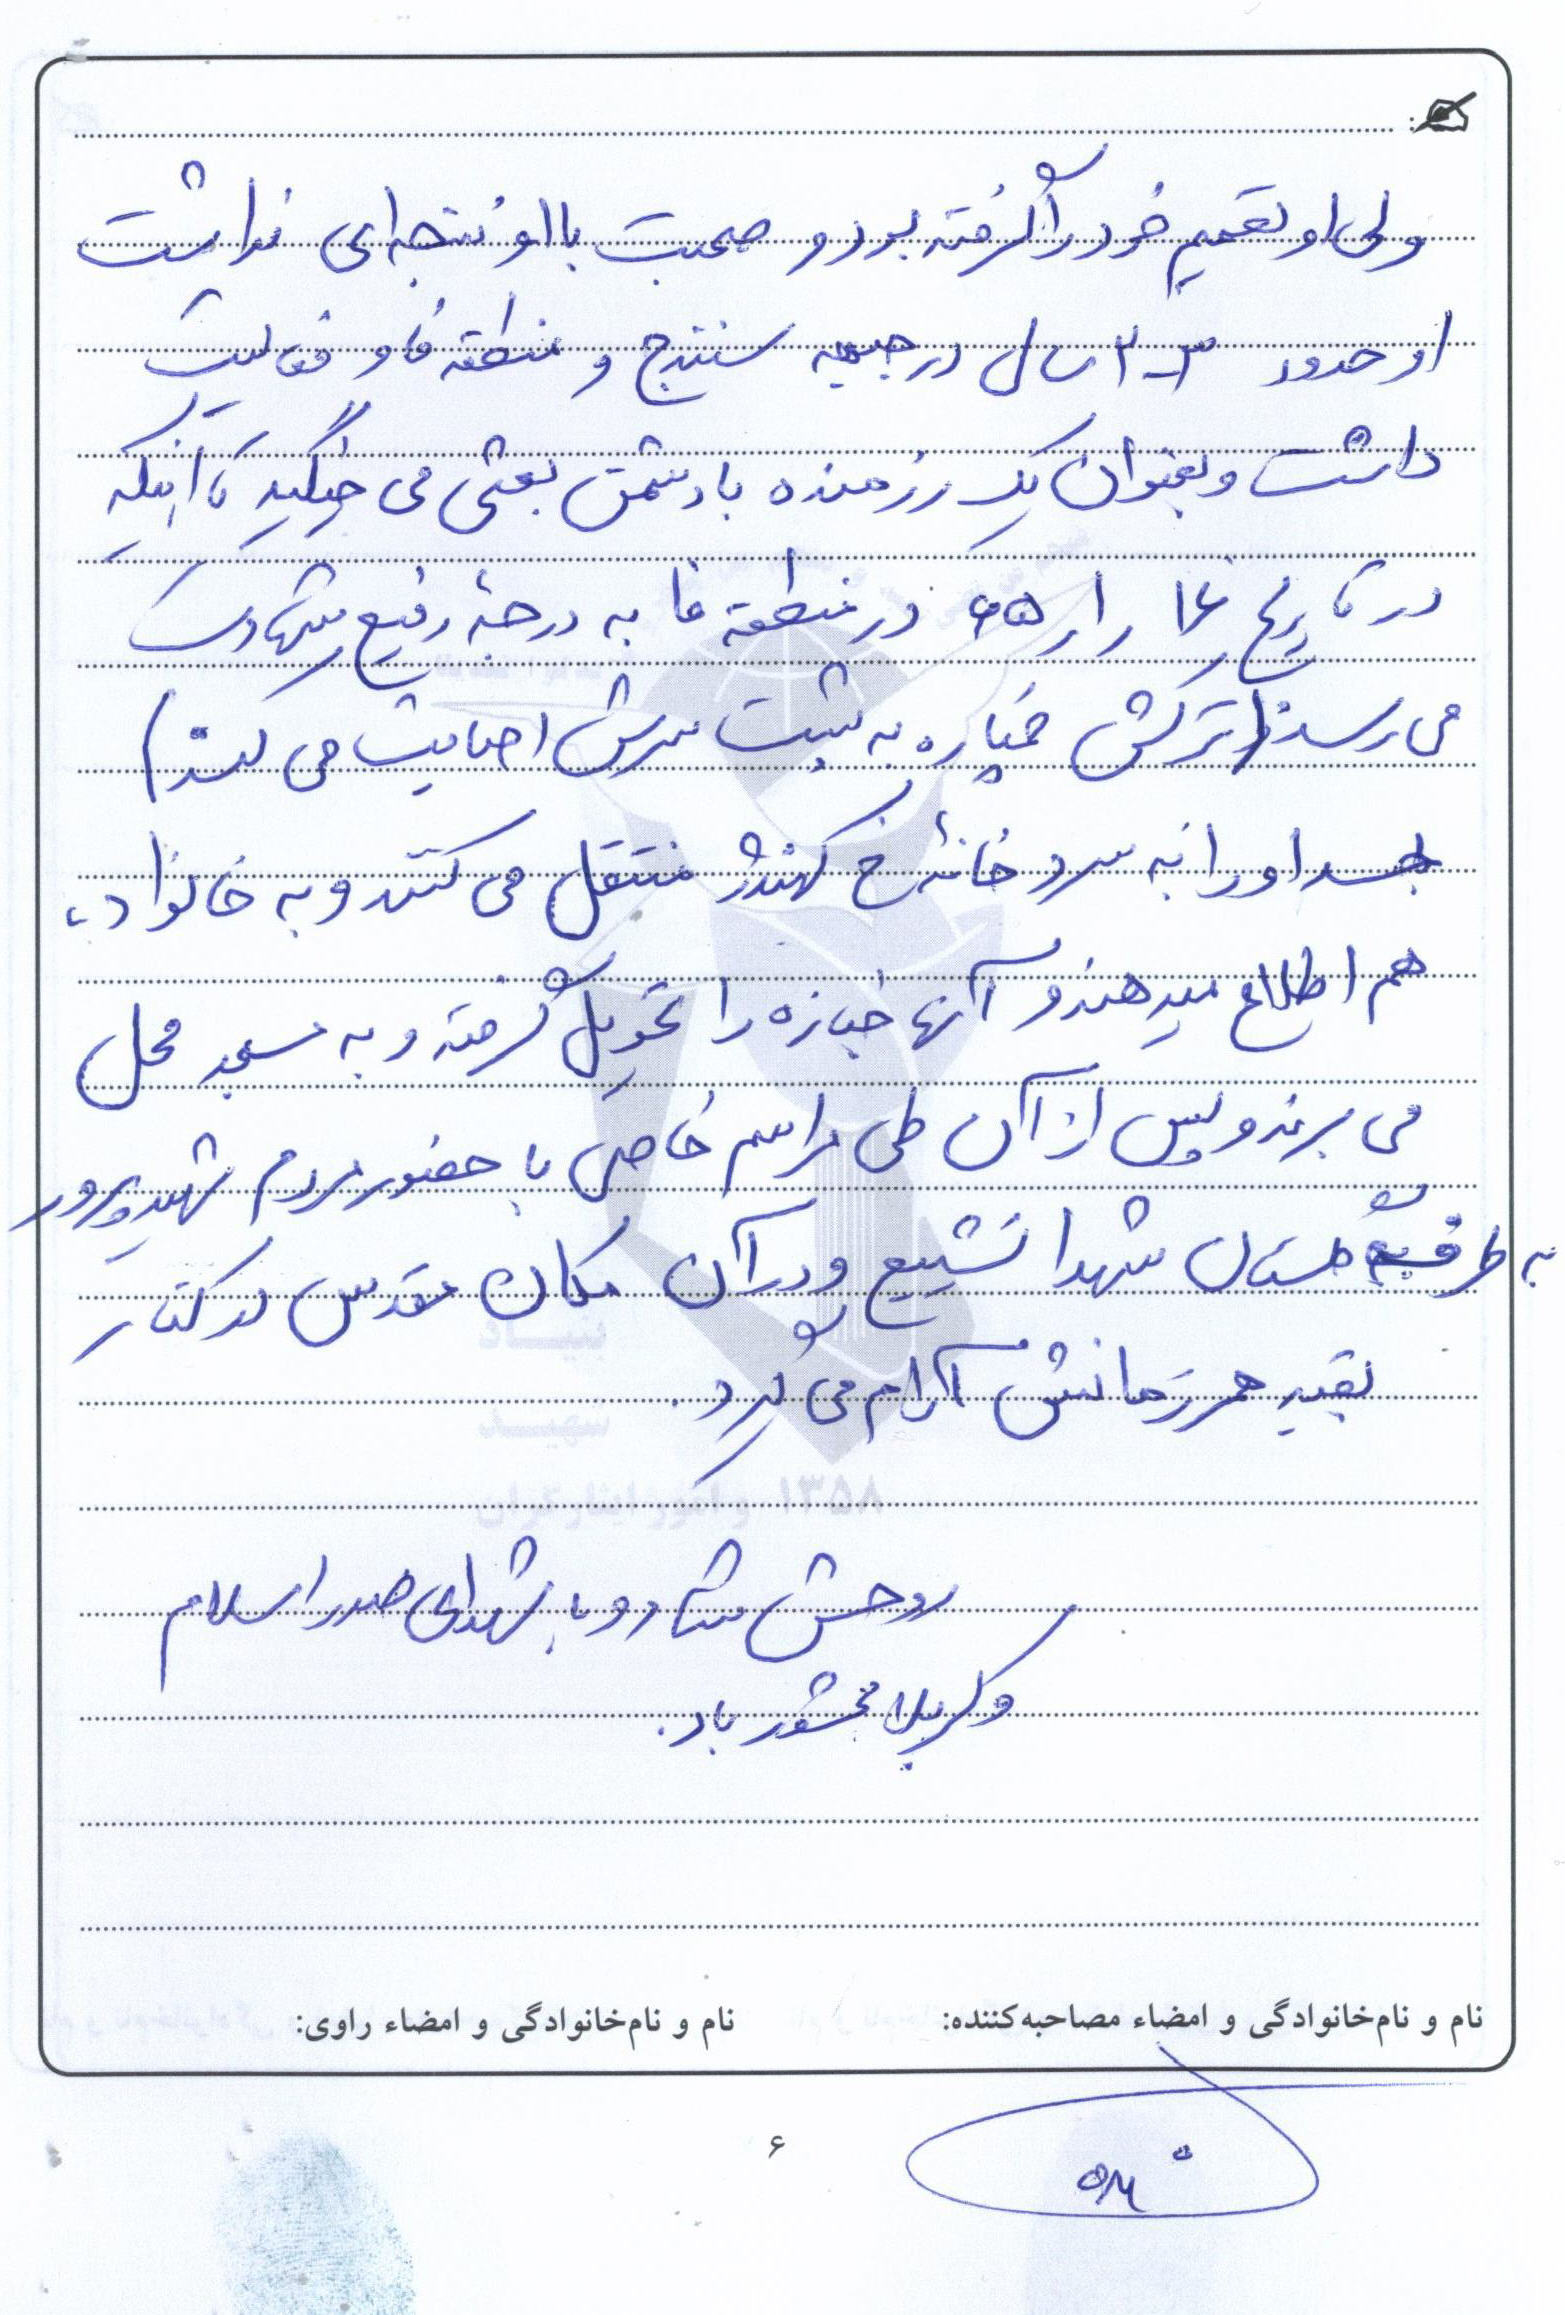 ولی او تصمیم خود را گرفته بود و صحبت با او نتیجه‌ای نداشت
او حدود ۳-۲ سال در جبهه سنندج و منطقه فاو فعالیت
داشت و بعنوان یک رزمنده با دشمن بعثی می جنگید تا اینکه
در تاریخ ۱۶ ر ۱ ر ۶۵ در منطقه فا به درجهٔ رفیع شهادت
می رسد (ترکش خمپاره به پشت سرش اصابت می کند)
جسد او را به سردخانهٔ خ کهندژ منتقل می کنند و به خانواده
هم اطلاع میدهند و آنها جنازه را تحویل گرفته و به مسجد محل
می برند و پس از آن طی مراسم خاصی با حضور مردم شهیدپرور
به طرف گلستان شهدا تشییع و در آن مکان مقدس در کنار
بقیه همرزمانش آرام می گیرد.
روحش شاد و با شهدای صدر اسلام
و کربلا محشور باد.
بنیاد
شهید
و امور ایثارگران ۱۳۵۸
نام و نام‌خانوادگی و امضاء مصاحبه‌کننده: نام و نام‌خانوادگی و امضاء راوی:
۶